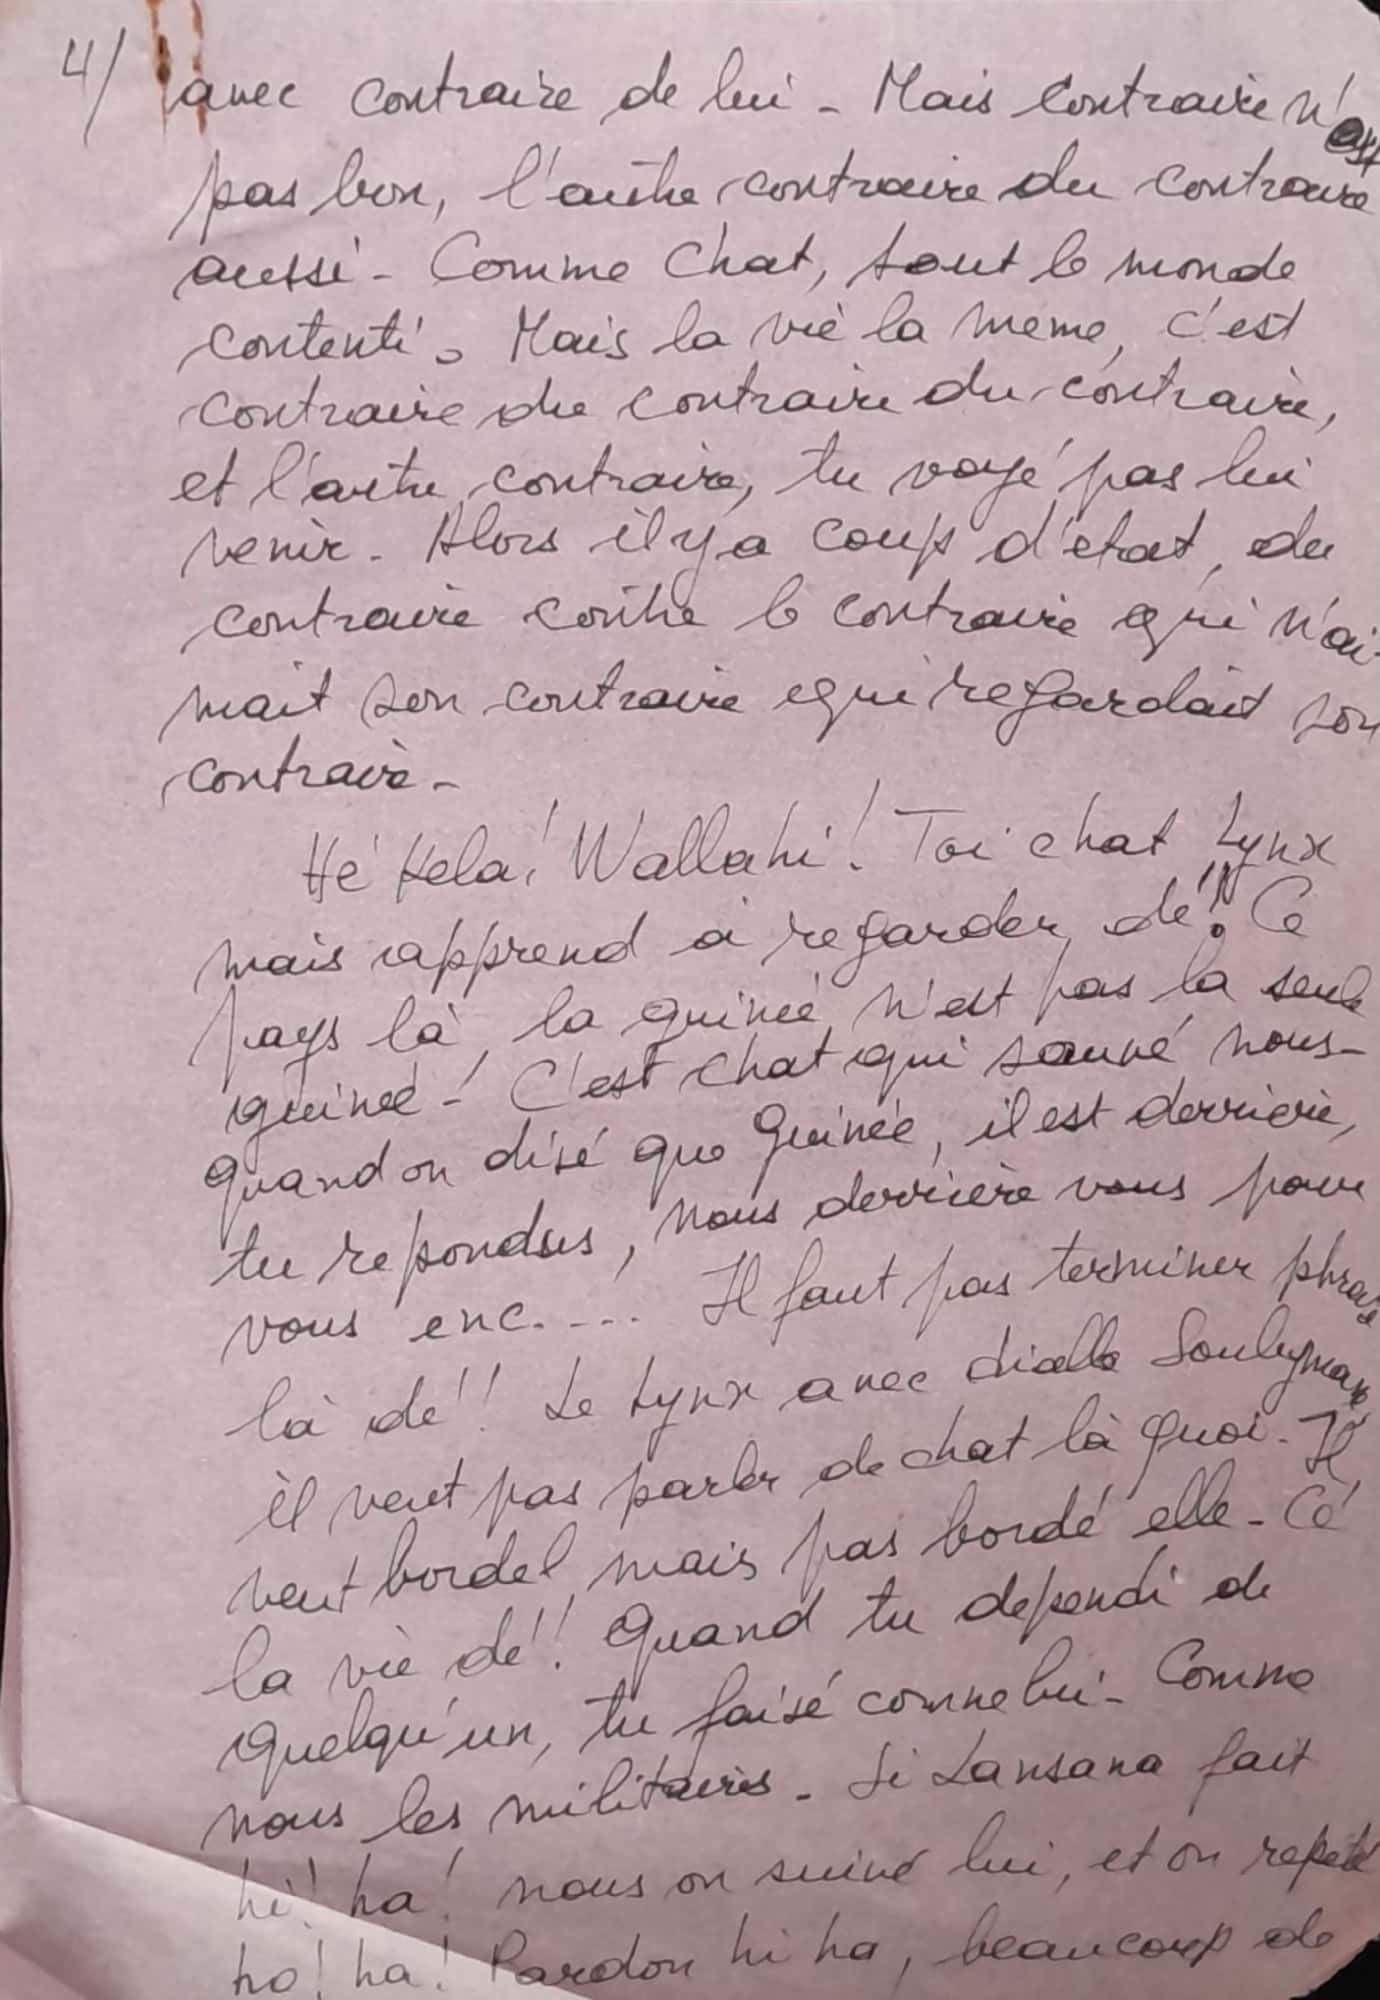 4/ avec contraire de lui - Mais contraire n'est
pas bon, l'autre contraire du contraire
aussi - Comme Chat, tout le monde
contenti. Mais la vie là meme, c'est
contraire du contraire du contraire,
et l'autre contraire, tu voyé pas lui
venir. Alors il y a coup d'etat, du
contraire contre le contraire qui n'ai-
mait son contraire qui regardait son
contraire -
Hé Kela! Wallahi! Toi chat Lynx
mais apprend à regarder dé! Ce
pays là, la guinée n'est pas la seule
guinée! C'est chat qui sauvé nous -
Quand on disé que Guinée, il est derrière,
tu repondus, nous derrière vous pour
vous enc.... Il faut pas terminer phrase
là dé!! Le Lynx avec diallo Souleymane
il veut pas parler de chat là quoi. Il
veut bordel mais pas bordé elle - Cé
la vie dé!! Quand tu dependi de
quelqu'un, tu faisé comme lui - Comme
nous les militaires. Si Lansana fait
hi! ha! nous on suivé lui, et on repeté
ho! ha! Pardon hi ha, beaucoup de